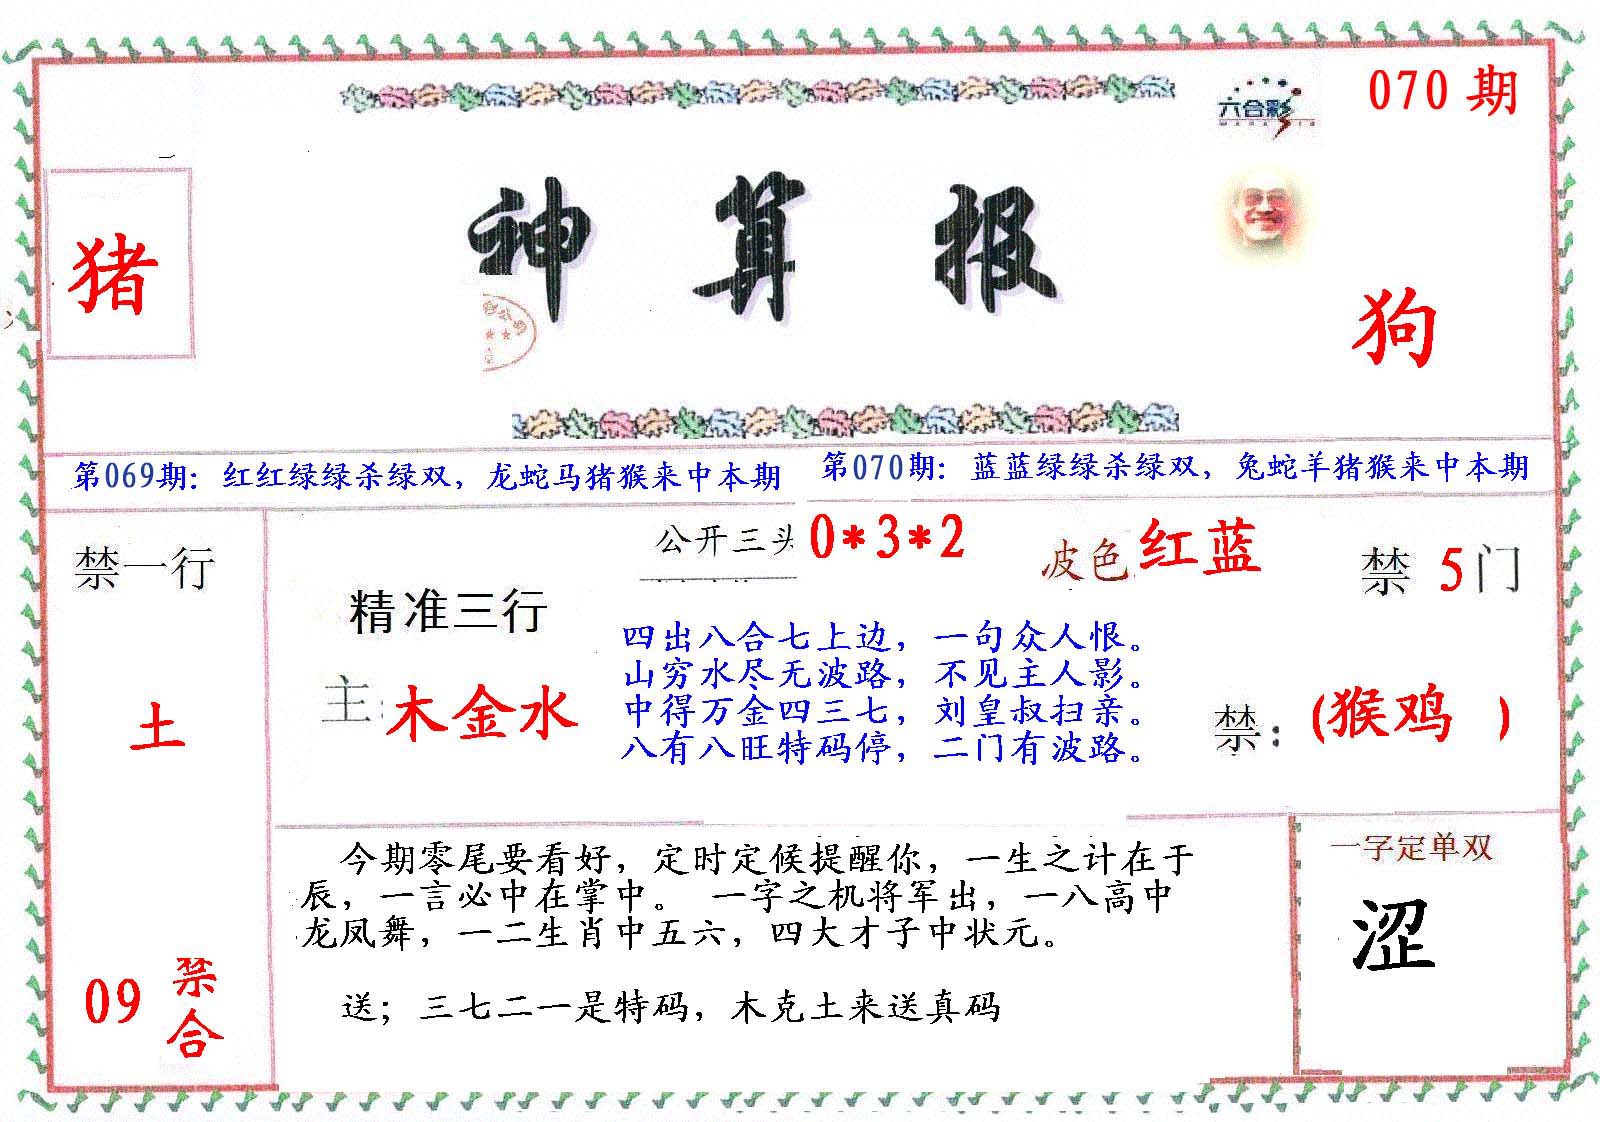 070期
六合彩
神算报
猪
狗
第069期：红红绿绿杀绿双，龙蛇马猪猴来中本期
第070期：蓝蓝绿绿杀绿双，兔蛇羊猪猴来中本期
禁一行
土
09禁合
公开三头 0*3*2
波色 红蓝
禁 5 门
精准三行
主：木金水
四出八合七上边，一句众人恨。
山穷水尽无波路，不见主人影。
中得万金四三七，刘皇叔扫亲。
八有八旺特码停，二门有波路。
禁：(猴鸡 )
今期零尾要看好，定时定候提醒你，一生之计在于
辰，一言必中在掌中。 一字之机将军出，一八高中
龙凤舞，一二生肖中五六，四大才子中状元。
送；三七二一是特码，木克土来送真码
一字定单双
涩